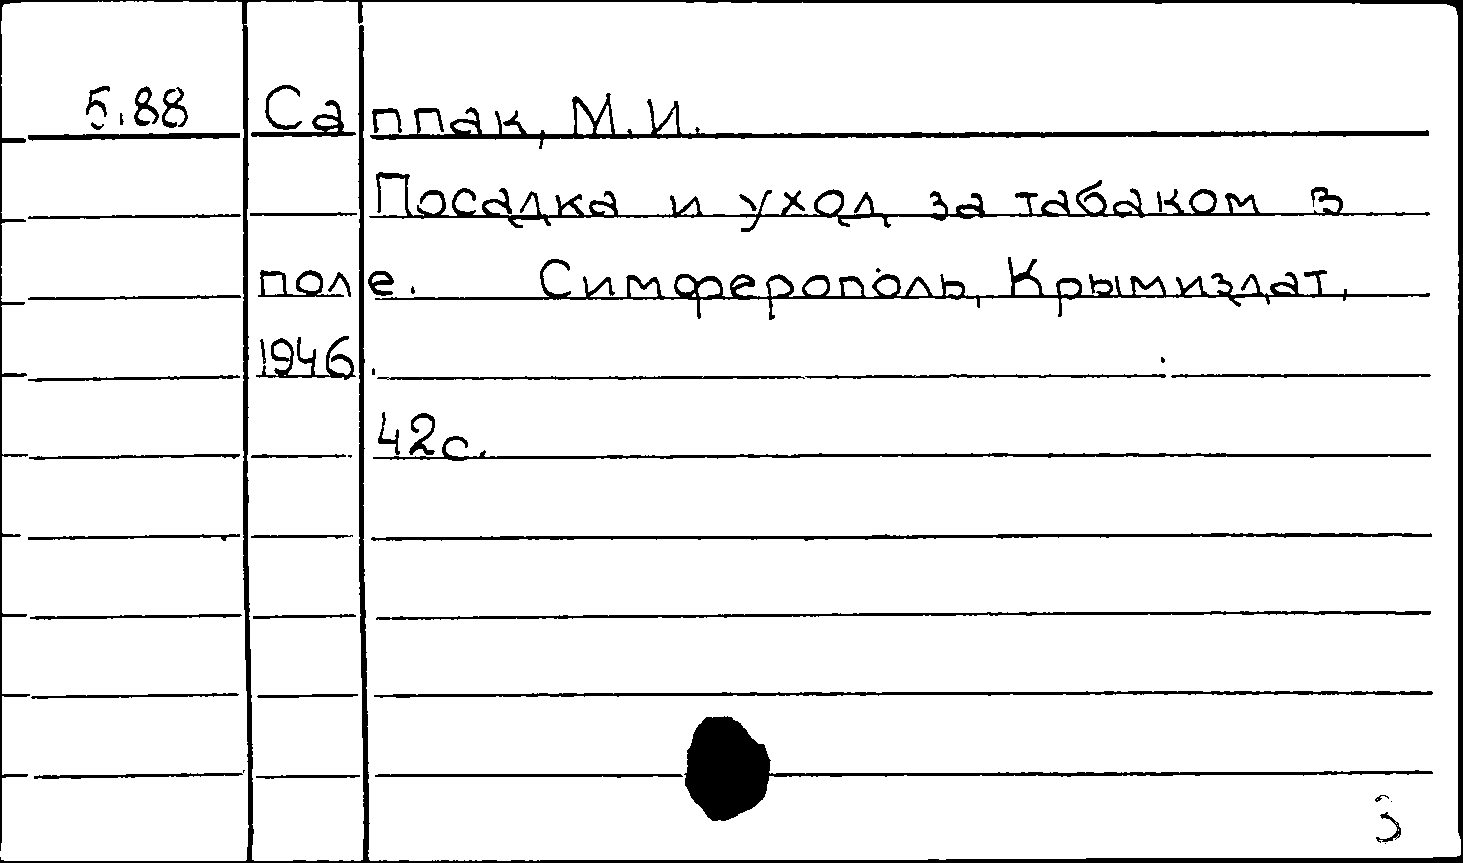 5.88 Саппак, М.И.
Посадка и уход за табаком в
поле. Симферополь, Крымиздат,
1946.
42с.
3